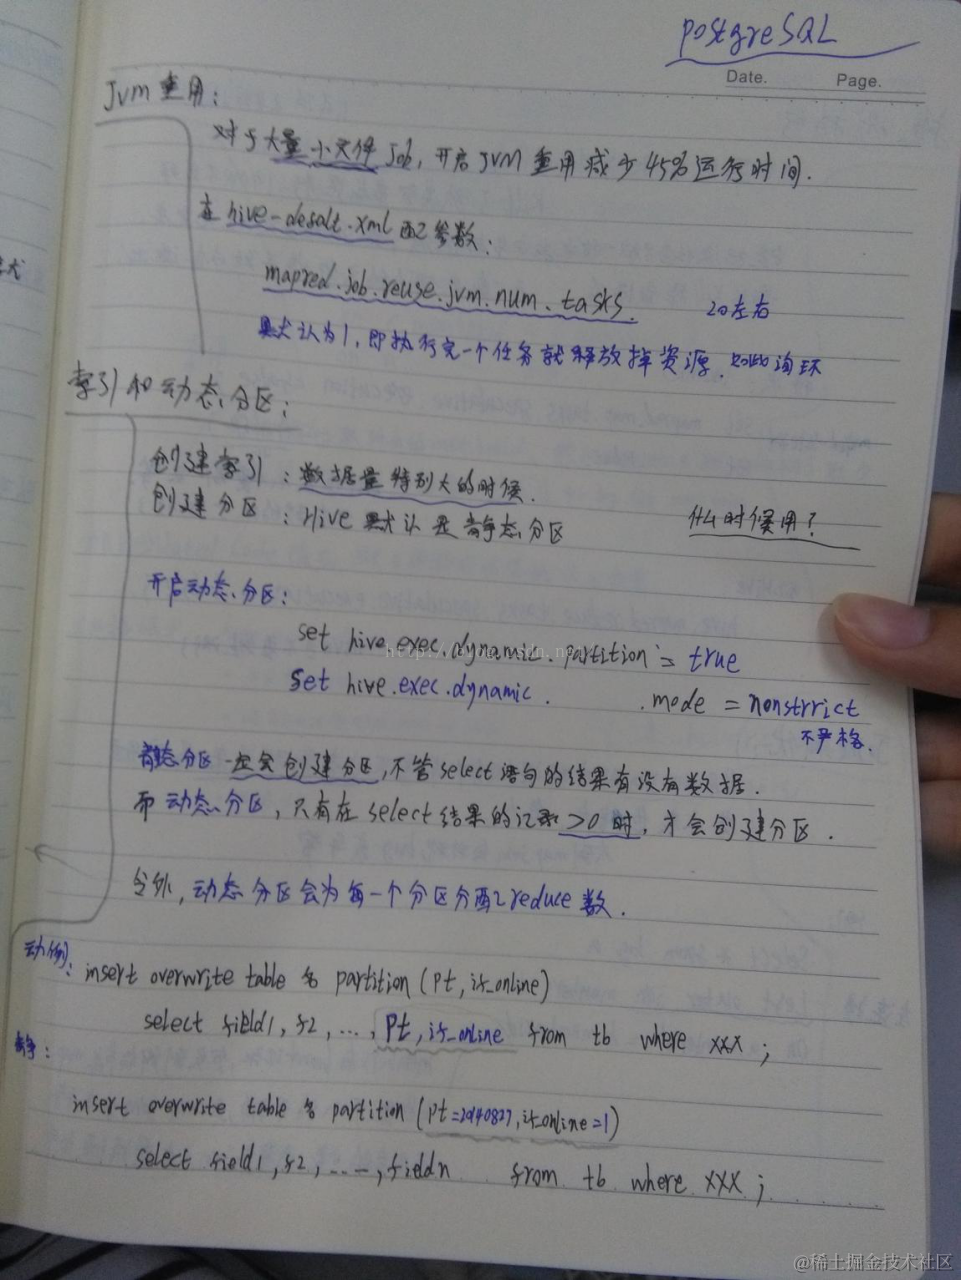 postgreSQL
Date. Page.
Jvm重用:
对于大量小文件Job, 开启JVM重用减少45%运行时间.
在hive-default.xml配参数:
mapred.job.reuse.jvm.num.tasks. 20左右
默认为1, 即执行完一个任务就释放掉资源, 如此循环
索引和动态分区:
创建索引: 数据量特别大的时候.
创建分区: Hive默认是静态分区 什么时候用?
开启动态分区:
set hive.exec.dynamic.partition = true
set hive.exec.dynamic. .mode = nonstrrict
不严格.
静态分区一定会创建分区, 不管select语句的结果有没有数据.
而动态分区, 只有在select结果的记录>0时, 才会创建分区.
令外, 动态分区会为每一个分区分配reduce数.
动(例):
insert overwrite table 名 partition (pt, if_online)
select field1, f2, ..., pt, if_online from tb where xxx;
静:
insert overwrite table 名 partition (pt=20140827, if_online=1)
select field1, f2, ..., fieldn from tb where xxx;
@稀土掘金技术社区